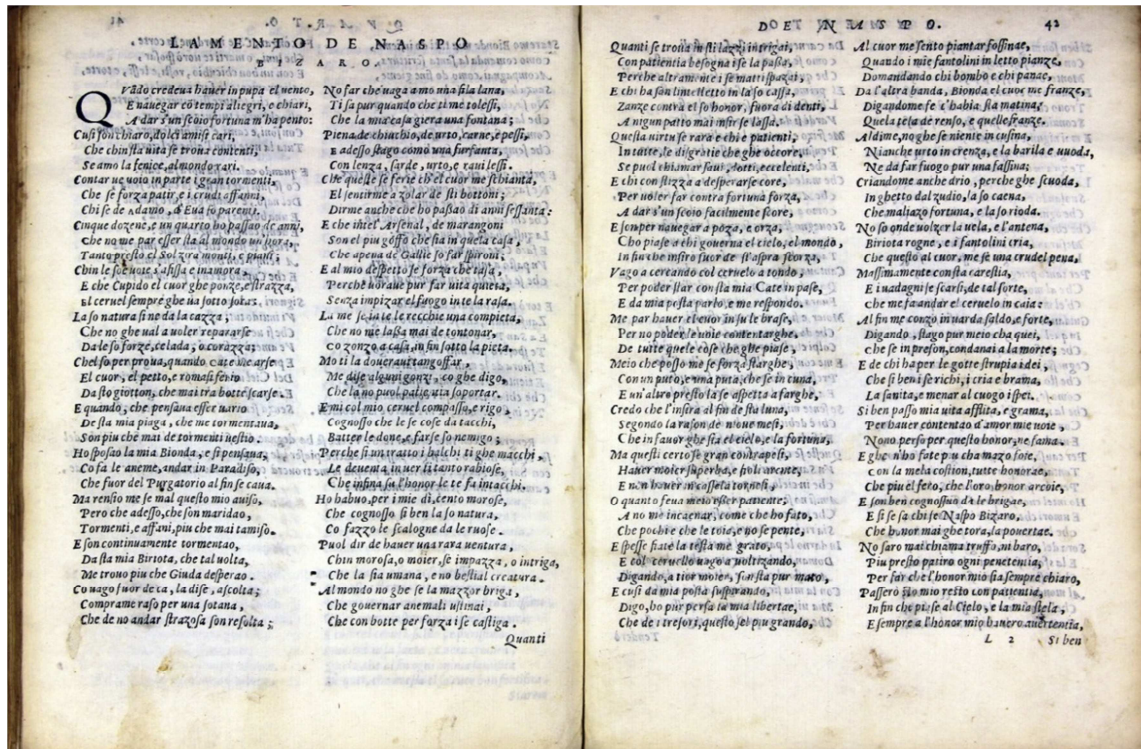 LAMENTO DE NASPO
BIZARO.
QVādo credeua hauer in pupa el uento,
E nauegar cō tempi aliegri, e chiari,
A dar s'un scoio fortuna m'ha pento:
Cusi son chiaro, dolci amisi cari,
Che chin sta uita se troua contenti,
Se amo la fenice, al mondo rari.
Contar ue uoio in parte i gran tormenti,
Che se forza patir, e i crudi affanni,
Chi se de Adamo, & Eua so parenti.
Cinque dozene, e un quarto ho passao de anni,
Che no me par esser sta al mondo un hora,
Tanto presto el Sol zira monti, e piani;
Chin le soe uoie s'afissa e inamora,
E che Cupido el cuor ghe ponze, e strazza,
El ceruel sempre ghe ua sotto sora.
La so natura si ne da la cazza;
Che no ghe ual a uoler repararse
Da le so forze, celada, o corazza;
Chel so per proua, quando Cate me arse
El cuor, el petto, e romasi ferio
Da sto giotton, che mai tra botte scarse.
E quando, che pensaua esser uario
De sta mia piaga, che me tormentaua,
Son piu che mai de tormenti uestio.
Ho sposao la mia Bionda, e si pensaua,
Co fa le aneme, andar in Paradiso,
Che fuor del Purgatorio al fin se caua.
Ma rensio me se mal questo mio auiso,
Pero che adesso, che son maridao,
Tormenti, e affani, piu che mai tamiso.
E son continuamente tormentao,
Da sta mia Biriota, che tal uolta,
Me trouo piu che Giuda desperao.
Co uago fuor de ca, la dise, ascolta;
Comprame raso per una sotana,
Che de no andar strazosa son resolta;
No far che uaga amo una fila lana,
Ti sa pur quando che ti me tolessi,
Che la mia casa giera una fontana;
Piena de chiuchio, de urto, carne, e pessi,
E adesso stago como una furfanta,
Con lenza, sarde, urto, e raui lessi.
Che queste se ferie ch'el cuor me schianta,
El sentirme a zolar de sti bottoni;
Dirme anche che ho passao di anni sessanta:
E che intel'Arsenal, de marangoni
Son el piu goffo che sia in quela casa,
Che apena de Gallie so far spironi;
E al mio despetto se forza che tasa,
Perche uoraue pur far uita quieta,
Senza impizar el fuogo inte la rasa.
La me se inte le recchie una compieta,
Che no me lassa mai de tontonar,
Co zonzo a casa, in fin sotto la pieta.
Mo ti la doueraue tangossar,
Me dise alguni gonzi, co ghe digo,
Che la no puol patir, uta soportar.
E mi col mio ceruel compasso, e rigo,
Cognosso che le se cose da tacchi,
Batter le done, e farse so nemigo;
Perche si un tratto i balchi ti ghe macchi,
Le deuenta in uer ti tanto rabiose,
Che infina su l'honor le te fa intacchi.
Ho habuo, per i mie dì, cento morose,
Che cognosso si ben la so natura,
Co fazzo le scalogne da le ruose.
Puol dir de hauer una rara uentura,
Chin morosa, o moier, se impazza, o intriga,
Che la sia umana, e no bestial creatura.
Al mondo no ghe se la mazzor briga,
Che gouernar anemali ustinai,
Che con botte per forza i se castiga.
Quanti
DE NASPO. 42
Quanti se troua in sti lazzi intrigai,
Con patientia besogna i se la passa,
Perche altramente i se matti spazai;
E chi ha son lintelletto in la so cassa,
Zanze contra el so honor, fuora di denti,
A nigun patto mai insir se lassa.
Questa uirtu se rara e chi e patienti,
In tutte, le disgratie che ghe occore,
Se puol chiamar sauj, dotti, eccelenti,
E chi con stizza a desperarse core,
Per uoler far contra fortuna forza,
A dar s'un scoio facilmente score,
E sempre nauegar a poza, e orza,
Cho piase a chi gouerna el cielo, el mondo,
In fin che insiro fuor de st'aspra scorza,
Vago a cercando col ceruelo a tondo,
Per poder star con sta mia Cate in pase,
E da mia posta parlo, e me respondo.
Me par hauer el cuor in su le brase,
Per no poder le uoie contentarghe,
De tutte quele cose che ghe piase,
Meio che posso me se forza starghe,
Con un puto, e una puta, che se in tuna,
E un'altro presto la se aspetta a farghe,
Credo che l'insira al fin de sta luna,
Segondo la rason de nioue mesi,
Che in fauor ghe sia el cielo, e la fortuna,
Ma questi certo se gran contrapesi,
Hauer moier superba, e fioli arente,
E non hauer in casseta tornesi,
O quanto feua meio esser patiente,
A no me incaenar, come che ho fato,
Che pochi e che le toie, e no se pente,
E spesse fiate la testa me grato,
E col ceruello uago a uoltizando,
Digando, a tior moier, son sta pur mato,
E cusi da mia posta suspirando,
Digo, ho pur persa la mia libertae,
Che de i tresori, questo sel piu grando,
Al cuor me sento piantar fossinae,
Quando i mie fantolini in letto pianze,
Domandando chi bombo e chi panae,
Da l'altra banda, Bionda el cuor me franze,
Digandome fe c'habia sta matina,
Quela tela de renso, e quelle franze.
Al dime, no ghe se niente in cusina,
Ni anche urto in crenza, e la barila e uuoda,
Ne da far fuogo pur una fassina;
Criandome anche drio, perche ghe scuoda,
In ghetto dal zudio, la so caena,
Che maliazo fortuna, e la so rioda.
No so onde uolzer la uela, e l'antena,
Biriota rogne, e i fantolini cria,
Che questo al cuor, me se una crudel pena,
Massimamente con sta carestia,
E i uadagni se scarsi, de tal sorte,
Che me fa andar el ceruelo in caia:
Al fin me conzo in uarda saldo, e forte,
Digando, stago pur meio cha quei,
che se in preson, condanai a la morte;
E de chi ha per le gotte strupia i dei,
Che si ben i se richi, i cria e brama,
La sanita, e menar al cuogo i pei.
Si ben passo mia uita afflita, e grama,
Per hauer contentao d'amor mie uoie,
No no perso per questo honor, ne fama.
E ghe n'ho fate piu cha mazo foie,
Con la mela costion, tutte honorae,
Che piu el feto, che l'oro honor arcoie,
E son ben cognossuo da le brigae,
E si se sa chi se Naspo Bizaro,
Che honor mai ghe tora, la pouertae.
No saro mai chiama truffo, ni baro,
Piu presto patiro ogni penetintia;
Per far che l'honor mio sia sempre chiaro,
Passerò sto mio resto con patientia,
In fin che piase al Cielo, e la mia stela,
E sempre a l'honor mio hauero auertentia,
L 2 Si ben